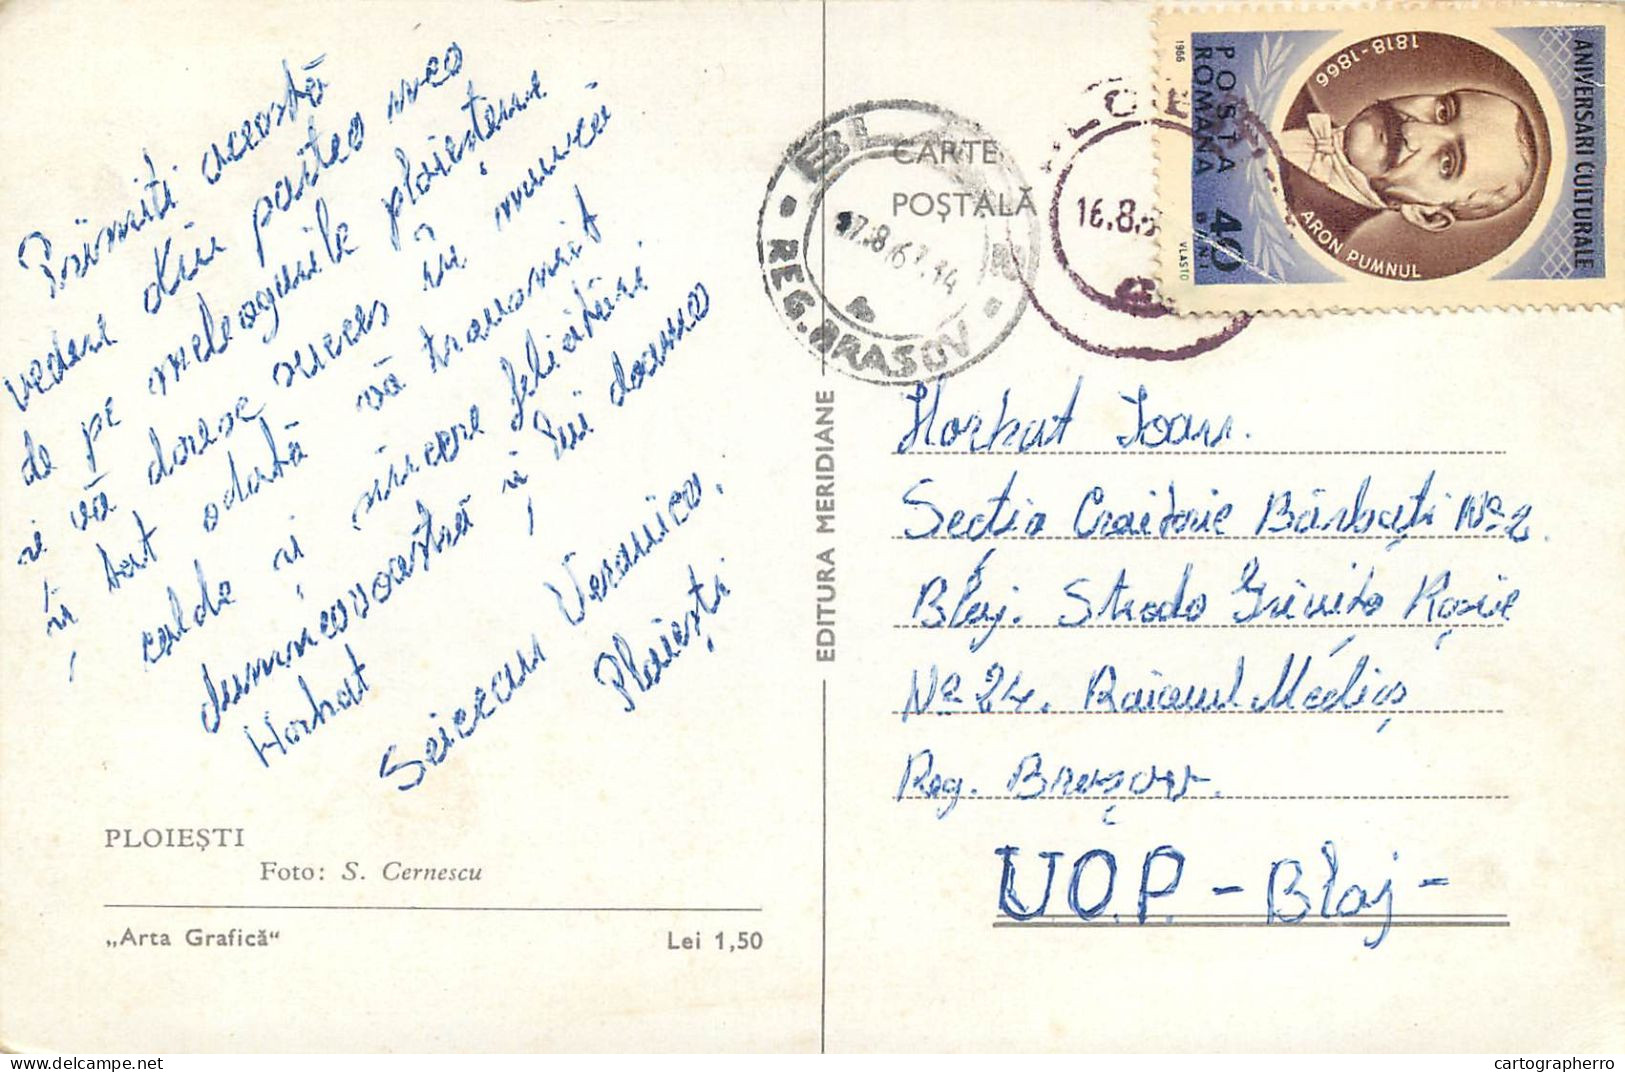 Primiți această
vedere din partea mea
de pe meleagurile ploieștene
și vă doresc succes în muncă
și tot odată vă transmit
calde și sincere felicitări
dumneavoastră și lui doamna
Horhat
Seicean Veronica.
Ploiești
PLOIEȘTI
Foto: S. Cernescu
„Arta Grafică“
Lei 1,50
EDITURA MERIDIANE
CARTE
POȘTALĂ
BLAJ
17.8.67.14
REG. BRASOV
16.8.
ANIVERSARI CULTURALE
1818-1866
ARON PUMNUL
POSTA
ROMANA
40
BANI
1966
VLASTO
Horhat Ioan.
Secția Croitorie Bărbați No 2
Blaj. Strada Grivița Roșie
No 24. Raionul Mediaș
Reg. Brașov.
U.O.P. - Blaj -
cartographerro